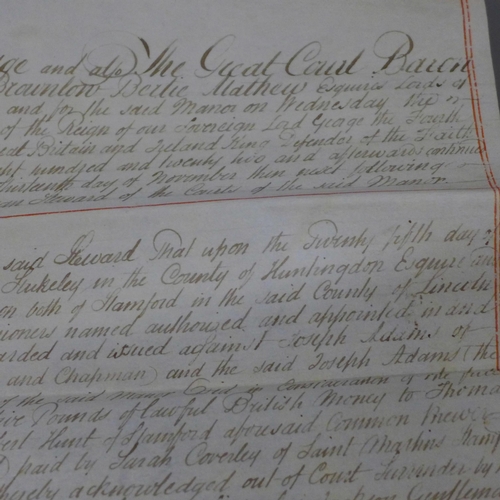 and also The Great Court Baron
Brownlow Bertie Mathew Esquires Lords of
and for the said Manor on Wednesday the
of the Reign of our Sovereign Lord George the Fourth
eat Britain and Ireland King Defender of the Faith
hundred and twenty two and afterwards continued
thirteenth day of November then next following
Steward of the Courts of the said Manor
said Steward That upon the Twenty fifth day of
Stukeley in the County of Huntingdon Esquire and
on both of Stamford in the said County of Lincoln
sioners named authorized and appointed in and
arded and issued against Joseph Adams of
and Chapman) and the said Joseph Adams (the
of the said
ive Pounds of lawful British Money to Thomas
bert Hunt of Stamford aforesaid Common Brewer
paid by Sarah Coverley of Saint Martins Stam
hereby acknowledged out of Court Surrender by